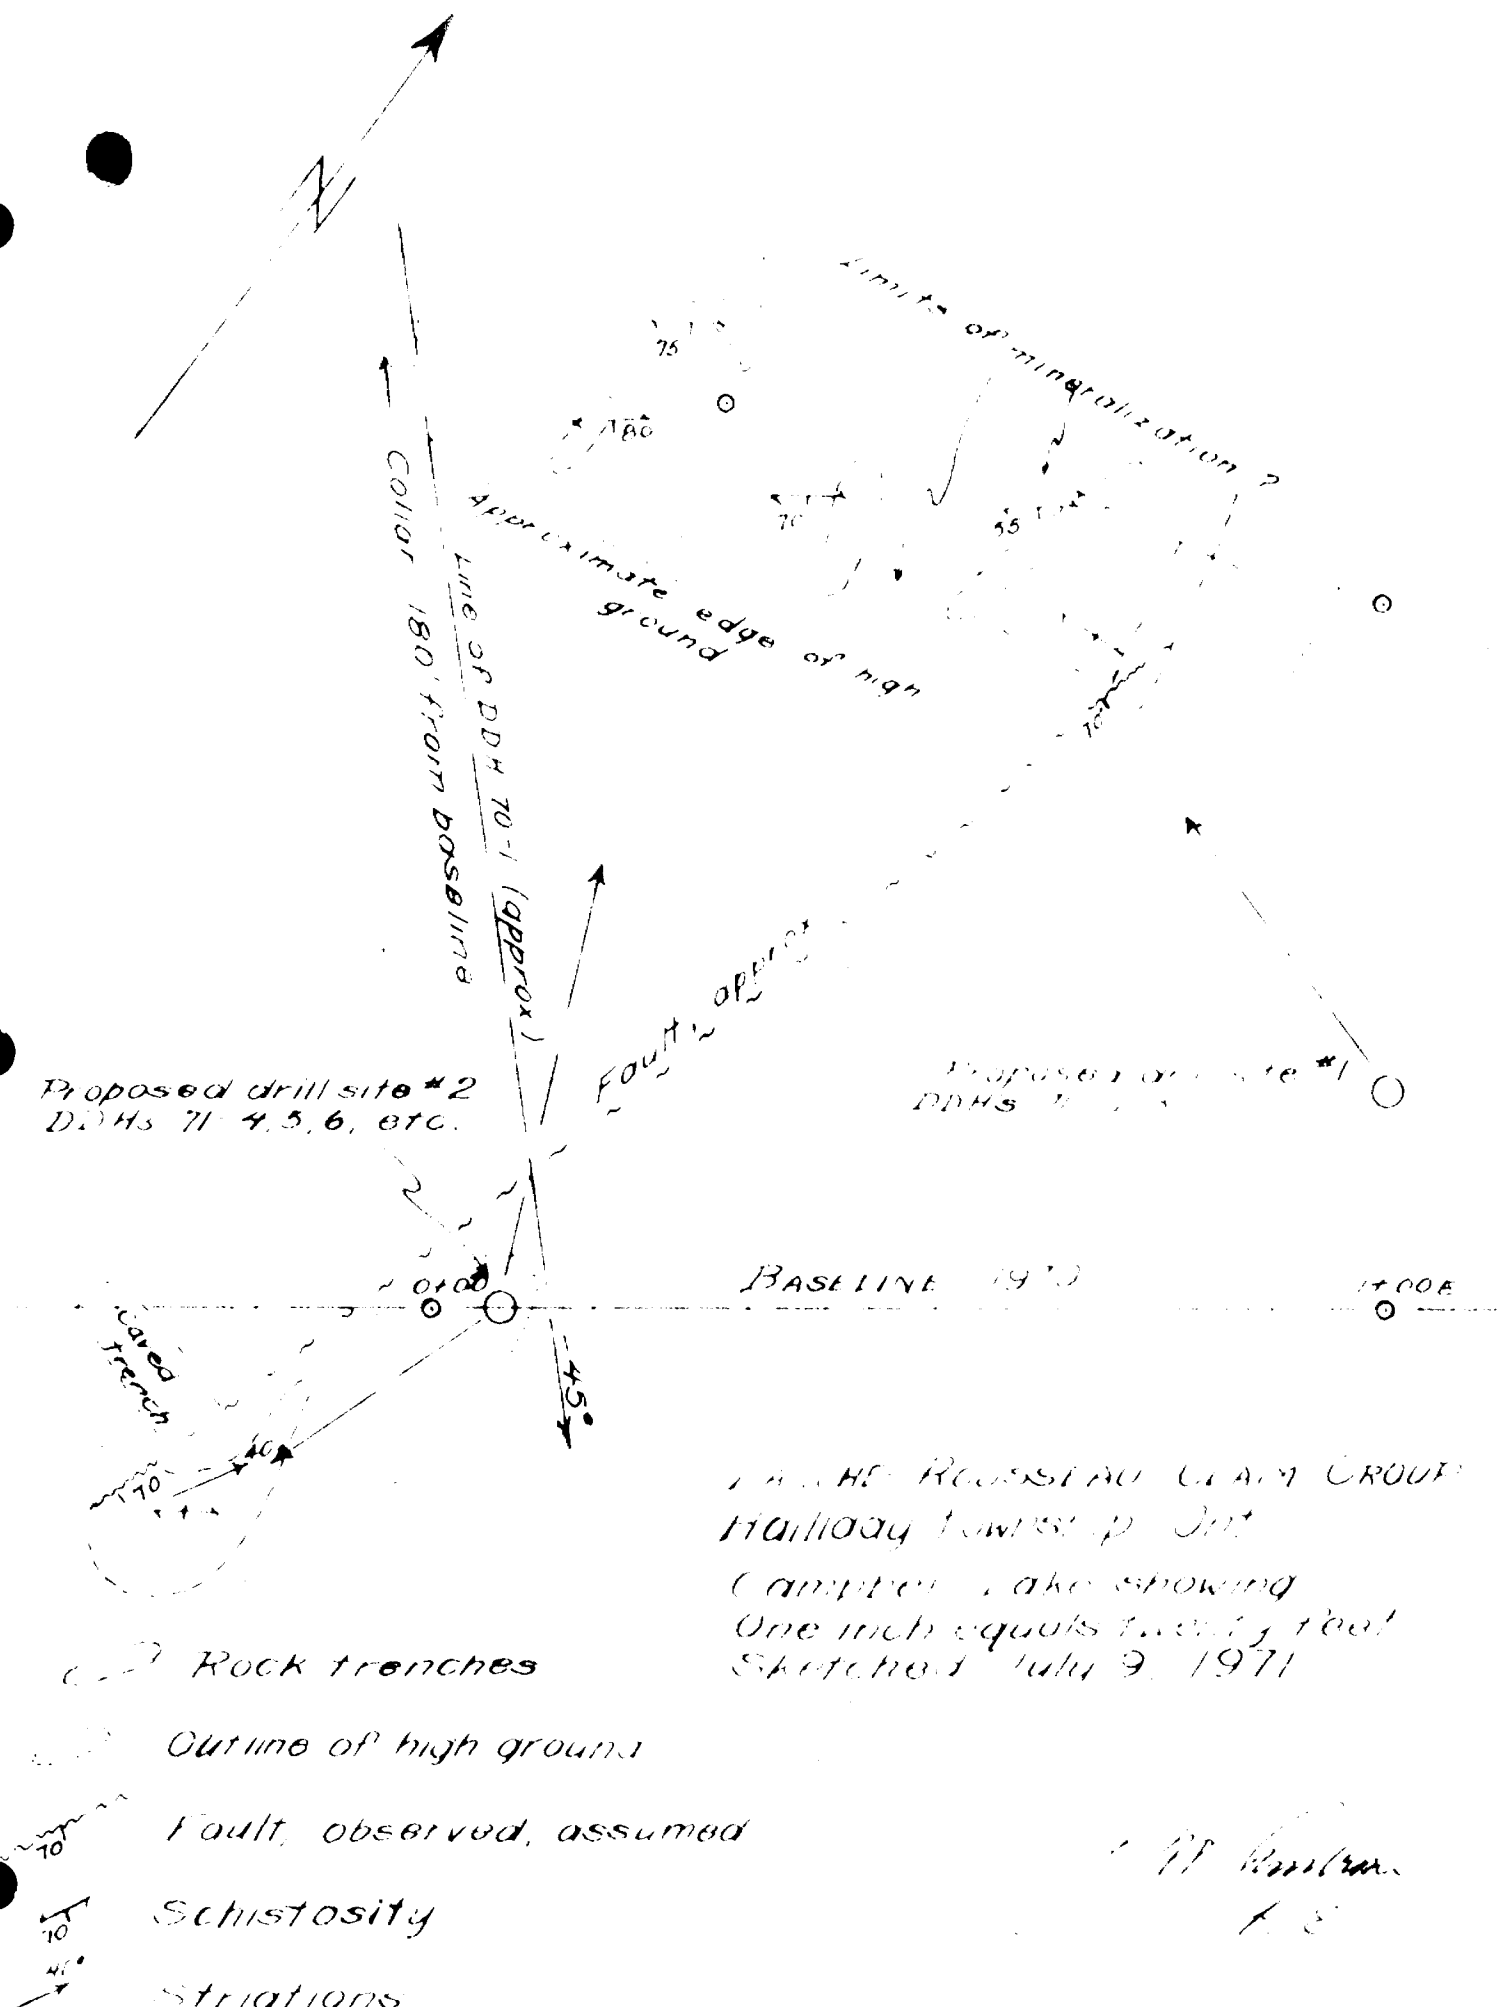 N
Limits of mineralization ?
75
80
70
55
Approximate edge of high
ground
70
Collar 180' from baseline
Line of DDH 70-1 (approx)
Fault, approx
Proposed drill site #2
DDHs 71-4,5,6, etc.
Proposed drill site #1
DDHs
0+00
BASELINE 1970
1+00E
Caved
trench
-45°
40
70
ROUSSEAU CLAIM GROUP
Halliday Township Ont
Lake showing
One inch equals twenty feet
Sketched July 9, 1971
Rock trenches
Outline of high ground
70
Fault, observed, assumed
70
Schistosity
Striations